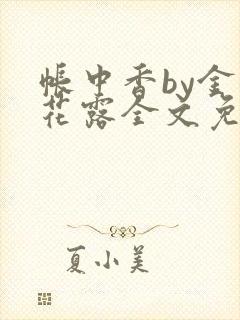 帐中香by金
花露全文免
夏小美